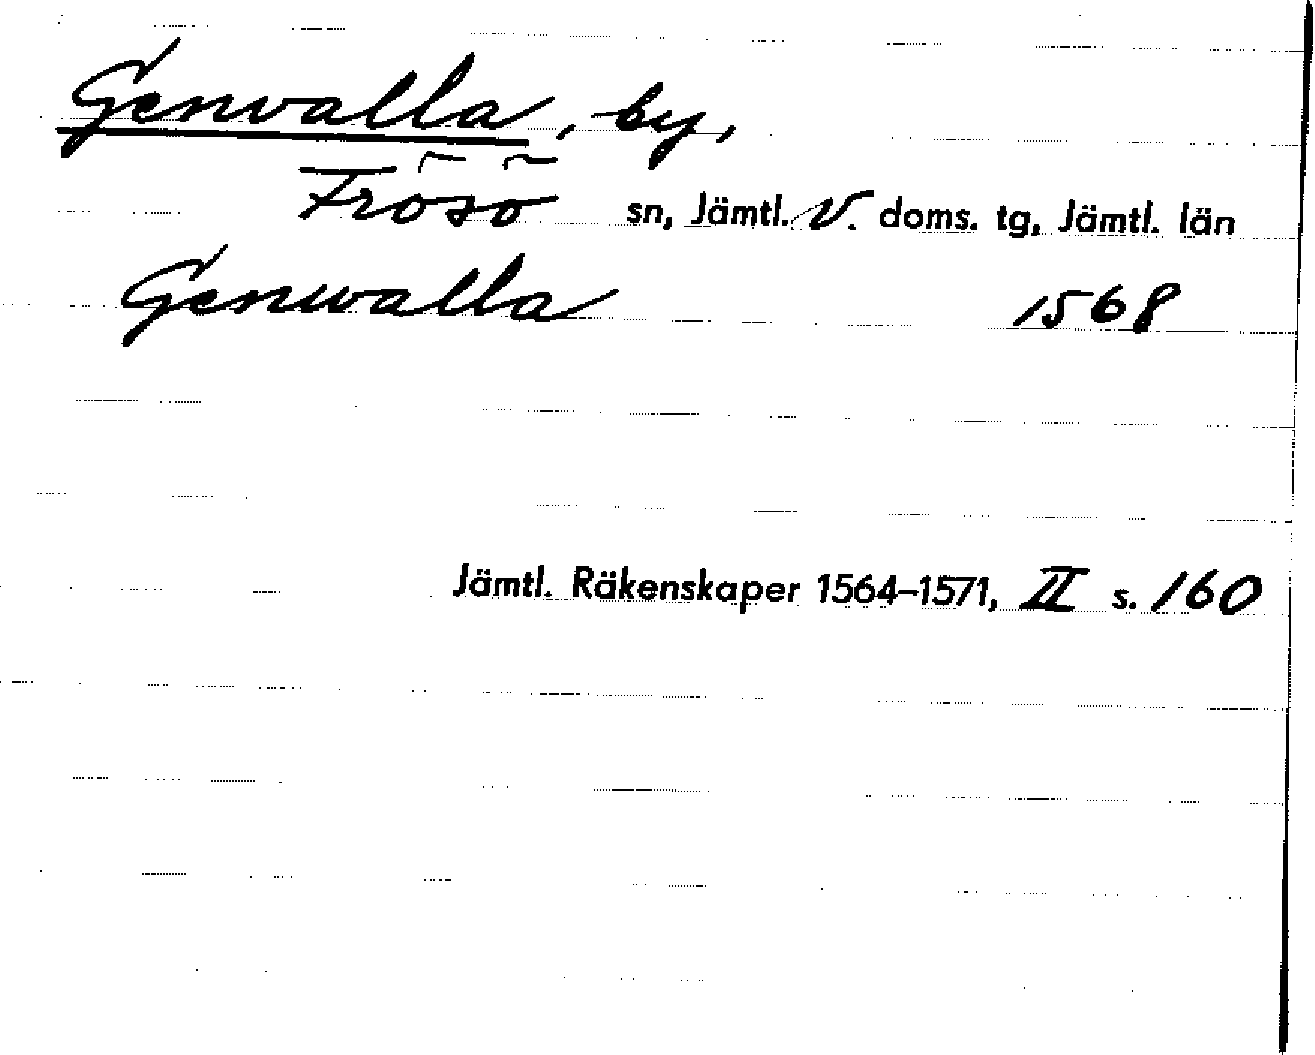 Genvalla, by,
Frösö sn, Jämtl. V. doms. tg, Jämtl. län
Genwalla 1568
Jämtl. Räkenskaper 1564–1571, II s. 160